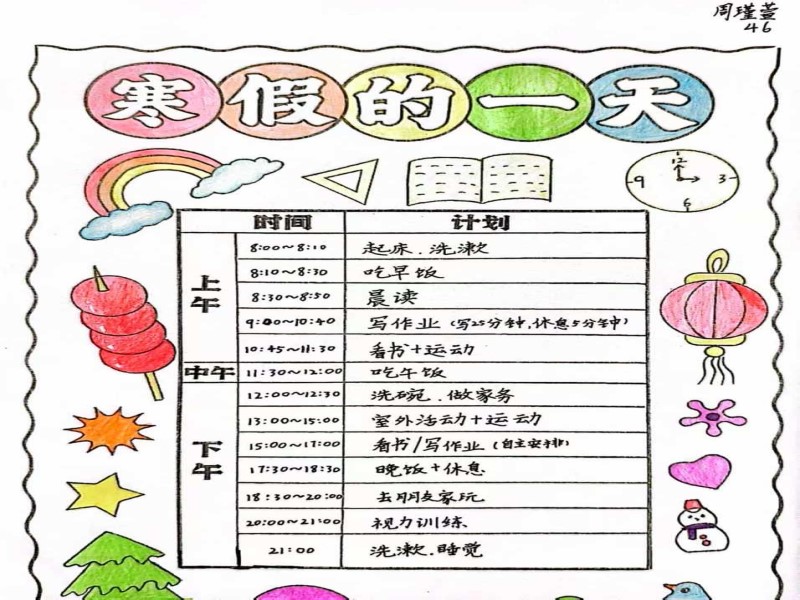 周瑾萱
46
寒假的一天
12
9 3
6
时间 计划
上午
8:00~8:10 起床.洗漱
8:10~8:30 吃早饭
8:30~8:50 晨读
9:00~10:40 写作业(写25分钟,休息5分钟)
10:45~11:30 看书+运动
中午 11:30~12:00 吃午饭
下午
12:00~12:30 洗碗.做家务
13:00~15:00 室外活动+运动
15:00~17:00 看书/写作业(自主安排)
17:30~18:30 晚饭+休息
18:30~20:00 去朋友家玩
20:00~21:00 视力训练
21:00 洗漱.睡觉